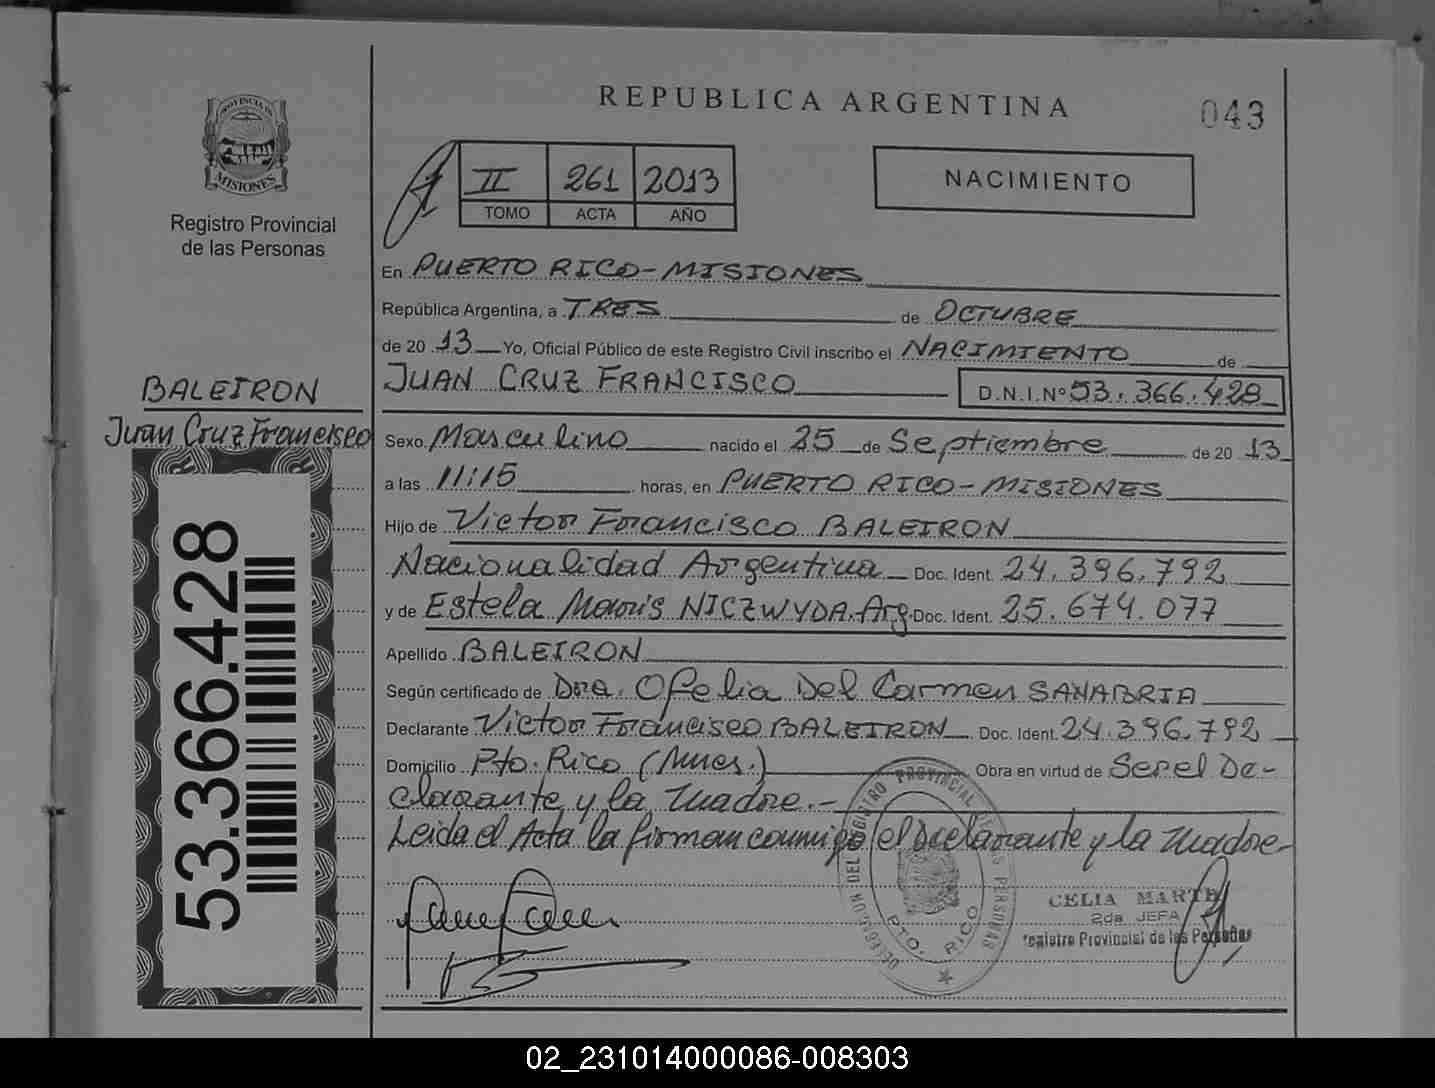 REPUBLICA ARGENTINA
043
PROVINCIA DE
MISIONES
Registro Provincial
de las Personas
II 261 2013
TOMO ACTA AÑO
NACIMIENTO
En PUERTO RICO-MISIONES
República Argentina, a TRES de OCTUBRE
de 20 13 Yo, Oficial Público de este Registro Civil inscribo el NACIMIENTO de
JUAN CRUZ FRANCISCO D.N.I.Nº 53.366.428
BALEIRON
Juan Cruz Francisco
Sexo Masculino nacido el 25 de Septiembre de 20 13
a las 11:15 horas, en PUERTO RICO-MISIONES
Hijo de Victor Francisco BALEIRON
Nacionalidad Argentina Doc. Ident. 24.396.792
y de Estela Maris NICZWYDA.Arg. Doc. Ident. 25.674.077
Apellido BALEIRON
Según certificado de Dra. Ofelia Del Carmen SANABRIA
Declarante Victor Francisco BALEIRON Doc. Ident. 24.396.792
Domicilio Pto. Rico (Mnes.) Obra en virtud de Ser el De-
clarante y la Madre.-
Leida el Acta la firman conmigo el Declarante y la Madre-
53.366.428
DELEGACION DEL REGISTRO PROVINCIAL DE LAS PERSONAS
PTO. RICO
CELIA
2da JEFA
Registro Provincial de las Personas
02_231014000086-008303